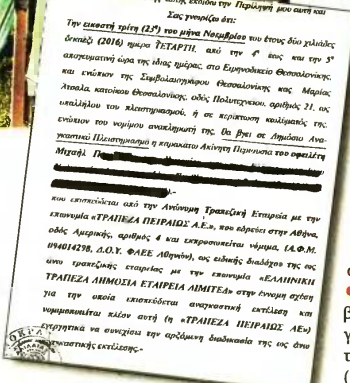 εκδίδω την Περίληψή μου αυτή και
Σας γνωρίζω ότι:
Την εικοστή τρίτη (23η) του μήνα Νοεμβρίου του έτους δύο χιλιάδες
δεκαέξι (2016) ημέρα ΤΕΤΑΡΤΗ, από την 4η έως και την 5η
απογευματινή ώρα της ίδιας ημέρας, στο Ειρηνοδικείο Θεσσαλονίκης,
και ενώπιον της Συμβολαιογράφου Θεσσαλονίκης κας Μαρίας
Ατσαλα, κατοίκου Θεσσαλονίκης, οδός Πολυτεχνείου, αριθμός 21, ως
υπαλλήλου του πλειστηριασμού, ή σε περίπτωση κωλύματός της,
ενώπιον του νομίμου αναπληρωτή της, θα βγει σε Δημόσιο Ανα-
γκαστικό Πλειστηριασμό η παρακάτω Ακίνητη Περιουσία του οφειλέτη
Μιχαήλ
που επισπεύδεται από την Ανώνυμη Τραπεζική Εταιρεία με την
επωνυμία «ΤΡΑΠΕΖΑ ΠΕΙΡΑΙΩΣ Α.Ε.», που εδρεύει στην Αθήνα,
οδός Αμερικής, αριθμός 4 και εκπροσωπείται νόμιμα, (Α.Φ.Μ.
094014298, Δ.Ο.Υ. ΦΑΕΕ Αθηνών), ως ειδικής διαδόχου της ως
άνω τραπεζικής εταιρείας με την επωνυμία «ΕΛΛΗΝΙΚΗ
ΤΡΑΠΕΖΑ ΔΗΜΟΣΙΑ ΕΤΑΙΡΕΙΑ ΛΙΜΙΤΕΔ» στην έννομη σχέση
για την οποία επισπεύδεται αναγκαστική εκτέλεση και
νομιμοποιείται πλέον αυτή (η «ΤΡΑΠΕΖΑ ΠΕΙΡΑΙΩΣ ΑΕ»)
ενεργητικά να συνεχίσει την αρξάμενη διαδικασία της ως άνω
αναγκαστικής εκτέλεσης.-